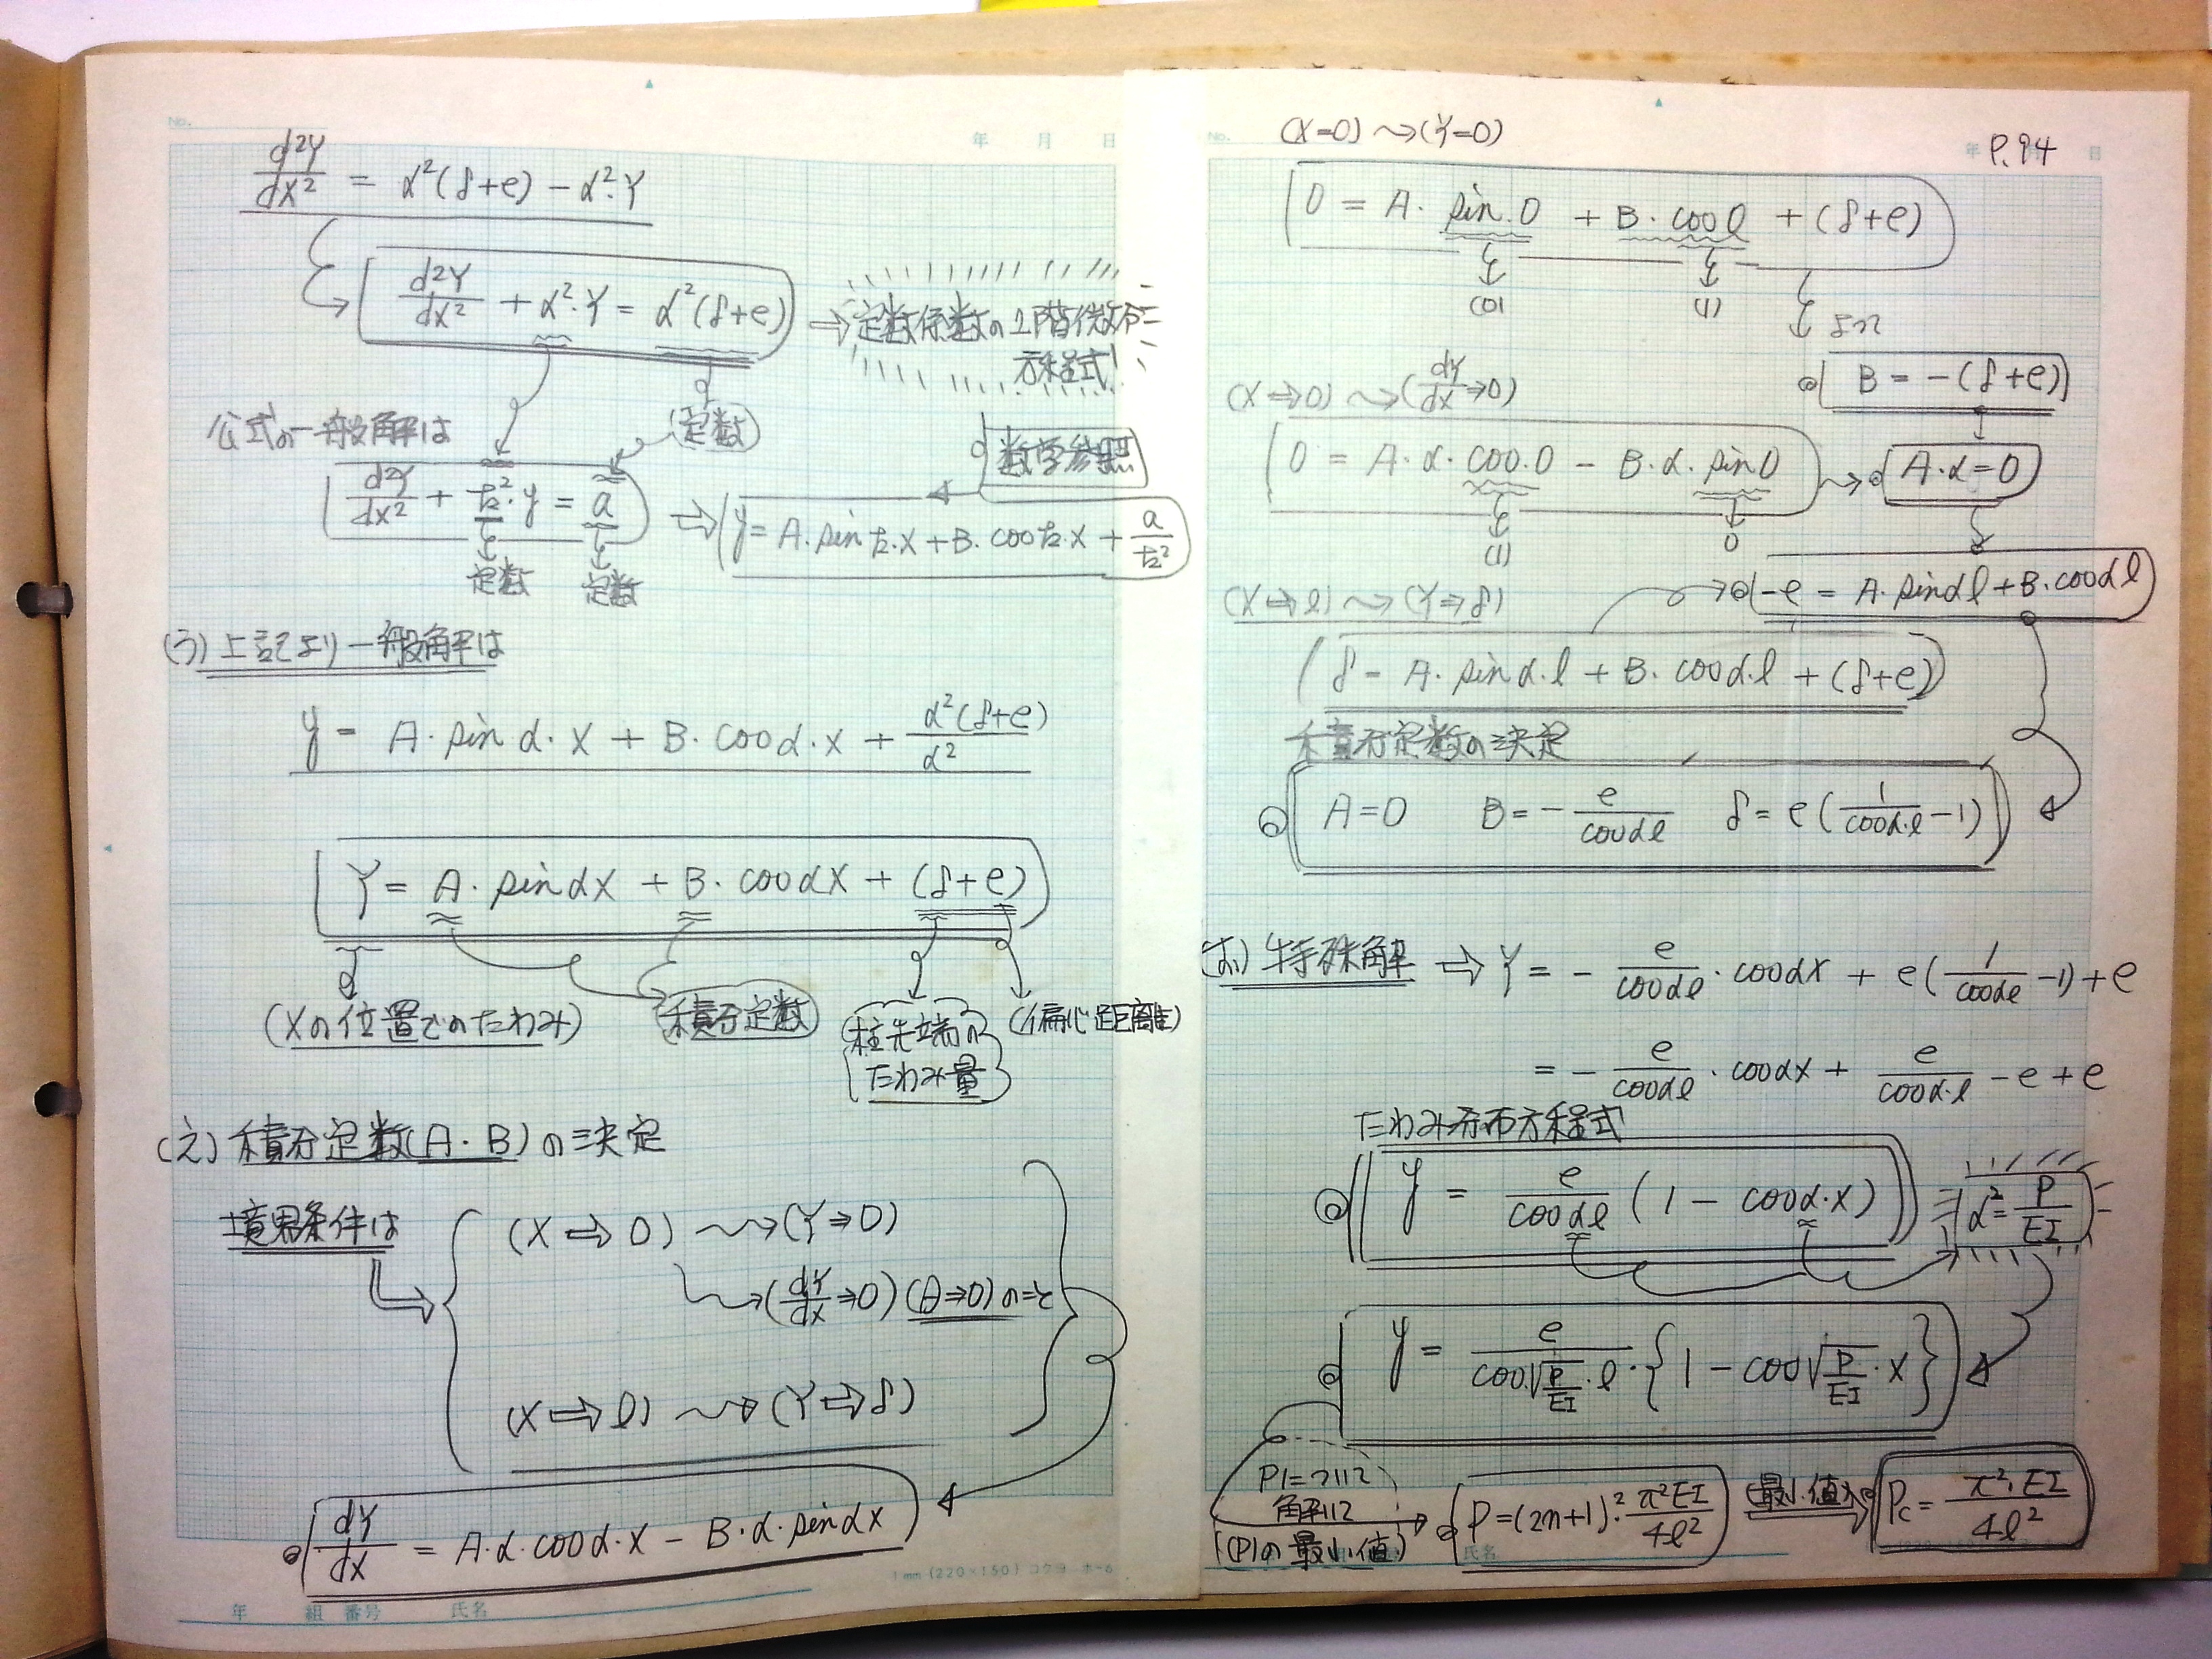 No. 年 月 日
d²Y/dX² = α²(δ+e) − α²·Y
d²Y/dX² + α²·Y = α²(δ+e) ⇒ 定数係数の2階微分
方程式!
公式の一般解は (定数) 数学参照
d²y/dx² + k²·y = a ⇒ y = A·sin k·x + B·cos k·x + a/k²
定数 定数
(う) 上記より一般解は
y = A·sin α·x + B·cos α·x + α²(δ+e)/α²
Y = A·sin αx + B·cos αx + (δ+e)
(Xの位置でのたわみ) 積分定数 (柱先端の (偏心距離)
たわみ量)
(え) 積分定数(A·B)の決定
境界条件は (X⇒0) ⤳ (Y⇒0)
(dY/dx⇒0) (θ⇒0)のこと
(X⇒l) ⤳ (Y⇒δ)
dY/dx = A·α·cos α·x − B·α·sin αx
1mm (220×150) コクヨ ホ-6
年 組 番号 氏名
No. (X=0) ⤳ (Y=0) 年 日 P.94
0 = A·sin·0 + B·cos 0 + (δ+e)
(0) (1) より
B = −(δ+e)
(X⇒0) ⤳ (dY/dx⇒0)
0 = A·α·cos·0 − B·α·sin 0 ⤳ A·α=0
(1) 0
(X⇒l) ⤳ (Y⇒δ) −e = A·sin αl + B·cos αl
δ = A·sin α·l + B·cos α·l + (δ+e)
積分定数の決定
A=0 B=−e/cos αl δ=e(1/cos α·l −1)
(お) 特殊解 ⇒ Y = −e/cos αl · cos αx + e(1/cos αl −1)+e
= −e/cos αl · cos αx + e/cos α·l −e+e
たわみ分布方程式
y = e/cos αl (1 − cos α·x) α² = P/EI
y = e/cos√(P/EI)·l · {1 − cos√(P/EI)·x}
Pについて
解くと
(Pの最小値) P=(2n+1)²·π²EI/4l² (最小値) Pc = π²·EI/4l²
氏名